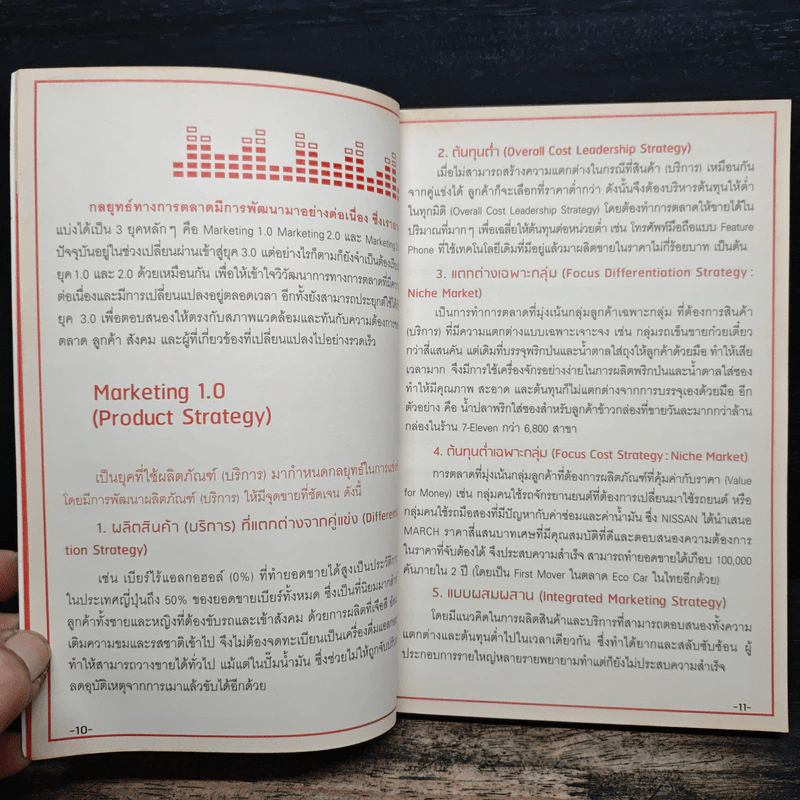 กลยุทธ์ทางการตลาดมีการพัฒนามาอย่างต่อเนื่อง ซึ่งเรา
แบ่งได้เป็น 3 ยุคหลักๆ คือ Marketing 1.0 Marketing 2.0 และ Marketing
ปัจจุบันอยู่ในช่วงเปลี่ยนผ่านเข้าสู่ยุค 3.0 แต่อย่างไรก็ตามก็ยังจำเป็นต้อง
ยุค 1.0 และ 2.0 ด้วยเหมือนกัน เพื่อให้เข้าใจวิวัฒนาการทางการตลาดที่มี
ต่อเนื่องและมีการเปลี่ยนแปลงอยู่ตลอดเวลา อีกทั้งยังสามารถประยุกต์ใช้ได้
ยุค 3.0 เพื่อตอบสนองให้ตรงกับสภาพแวดล้อมและทันกับความต้องการ
ตลาด ลูกค้า สังคม และผู้ที่เกี่ยวข้องที่เปลี่ยนแปลงไปอย่างรวดเร็ว
Marketing 1.0
(Product Strategy)
เป็นยุคที่ใช้ผลิตภัณฑ์ (บริการ) มากำหนดกลยุทธ์ในการ
โดยมีการพัฒนาผลิตภัณฑ์ (บริการ) ให้มีจุดขายที่ชัดเจน ดังนี้
1. ผลิตสินค้า (บริการ) ที่แตกต่างจากคู่แข่ง (Differen
tion Strategy)
เช่น เบียร์ไร้แอลกอฮอล์ (0%) ที่ทำยอดขายได้สูงเป็นประวัติ
ในประเทศญี่ปุ่นถึง 50% ของยอดขายเบียร์ทั้งหมด ซึ่งเป็นที่นิยมมาก
ลูกค้าทั้งชายและหญิงที่ต้องขับรถและเข้าสังคม ด้วยการผลิตที่เจือสี
เติมความขมและรสชาติเข้าไป จึงไม่ต้องจดทะเบียนเป็นเครื่องดื่มแอลกอ
ทำให้สามารถวางขายได้ทั่วไป แม้แต่ในปั๊มน้ำมัน ซึ่งช่วยไม่ให้ถูกจับ
ลดอุบัติเหตุจากการเมาแล้วขับได้อีกด้วย
-10-
2. ต้นทุนต่ำ (Overall Cost Leadership Strategy)
เมื่อไม่สามารถสร้างความแตกต่างในกรณีที่สินค้า (บริการ) เหมือนกัน
จากคู่แข่งได้ ลูกค้าก็จะเลือกที่ราคาต่ำกว่า ดังนั้นจึงต้องบริหารต้นทุนให้ต่ำ
ในทุกมิติ (Overall Cost Leadership Strategy) โดยต้องทำการตลาดให้ขายได้ใน
ปริมาณที่มากๆ เพื่อเฉลี่ยให้ต้นทุนต่อหน่วยต่ำ เช่น โทรศัพท์มือถือแบบ Feature
Phone ที่ใช้เทคโนโลยีเดิมที่มีอยู่แล้วมาผลิตขายในราคาไม่กี่ร้อยบาท เป็นต้น
3. แตกต่างเฉพาะกลุ่ม (Focus Differentiation Strategy :
Niche Market)
เป็นการทำการตลาดที่มุ่งเน้นกลุ่มลูกค้าเฉพาะกลุ่ม ที่ต้องการสินค้า
(บริการ) ที่มีความแตกต่างแบบเฉพาะเจาะจง เช่น กลุ่มรถเข็นขายก๋วยเตี๋ยว
กว่าสี่แสนคัน แต่เดิมที่บรรจุพริกป่นและน้ำตาลใส่ถุงให้ลูกค้าด้วยมือ ทำให้เสีย
เวลามาก จึงมีการใช้เครื่องจักรอย่างง่ายในการผลิตพริกป่นและน้ำตาลใส่ซอง
ทำให้มีคุณภาพ สะอาด และต้นทุนก็ไม่แตกต่างจากการบรรจุเองด้วยมือ อีก
ตัวอย่าง คือ น้ำปลาพริกใส่ซองสำหรับลูกค้าข้าวกล่องที่ขายวันละมากกว่าล้าน
กล่องในร้าน 7-Eleven กว่า 6,800 สาขา
4. ต้นทุนต่ำเฉพาะกลุ่ม (Focus Cost Strategy : Niche Market)
การตลาดที่มุ่งเน้นกลุ่มลูกค้าที่ต้องการผลิตภัณฑ์ที่คุ้มค่ากับราคา (Value
for Money) เช่น กลุ่มคนใช้รถจักรยานยนต์ที่ต้องการเปลี่ยนมาใช้รถยนต์ หรือ
กลุ่มคนใช้รถมือสองที่มีปัญหากับค่าซ่อมและค่าน้ำมัน ซึ่ง NISSAN ได้นำเสนอ
MARCH ราคาสี่แสนบาทเศษที่มีคุณสมบัติที่ดีและตอบสนองความต้องการ
ในราคาที่จับต้องได้ จึงประสบความสำเร็จ สามารถทำยอดขายได้เกือบ 100,000
คันภายใน 2 ปี (โดยเป็น First Mover ในตลาด Eco Car ในไทยอีกด้วย)
5. แบบผสมผสาน (Integrated Marketing Strategy)
โดยมีแนวคิดในการผลิตสินค้าและบริการที่สามารถตอบสนองทั้งความ
แตกต่างและต้นทุนต่ำไปในเวลาเดียวกัน ซึ่งทำได้ยากและสลับซับซ้อน ผู้
ประกอบการรายใหญ่หลายรายพยายามทำแต่ก็ยังไม่ประสบความสำเร็จ
-11-